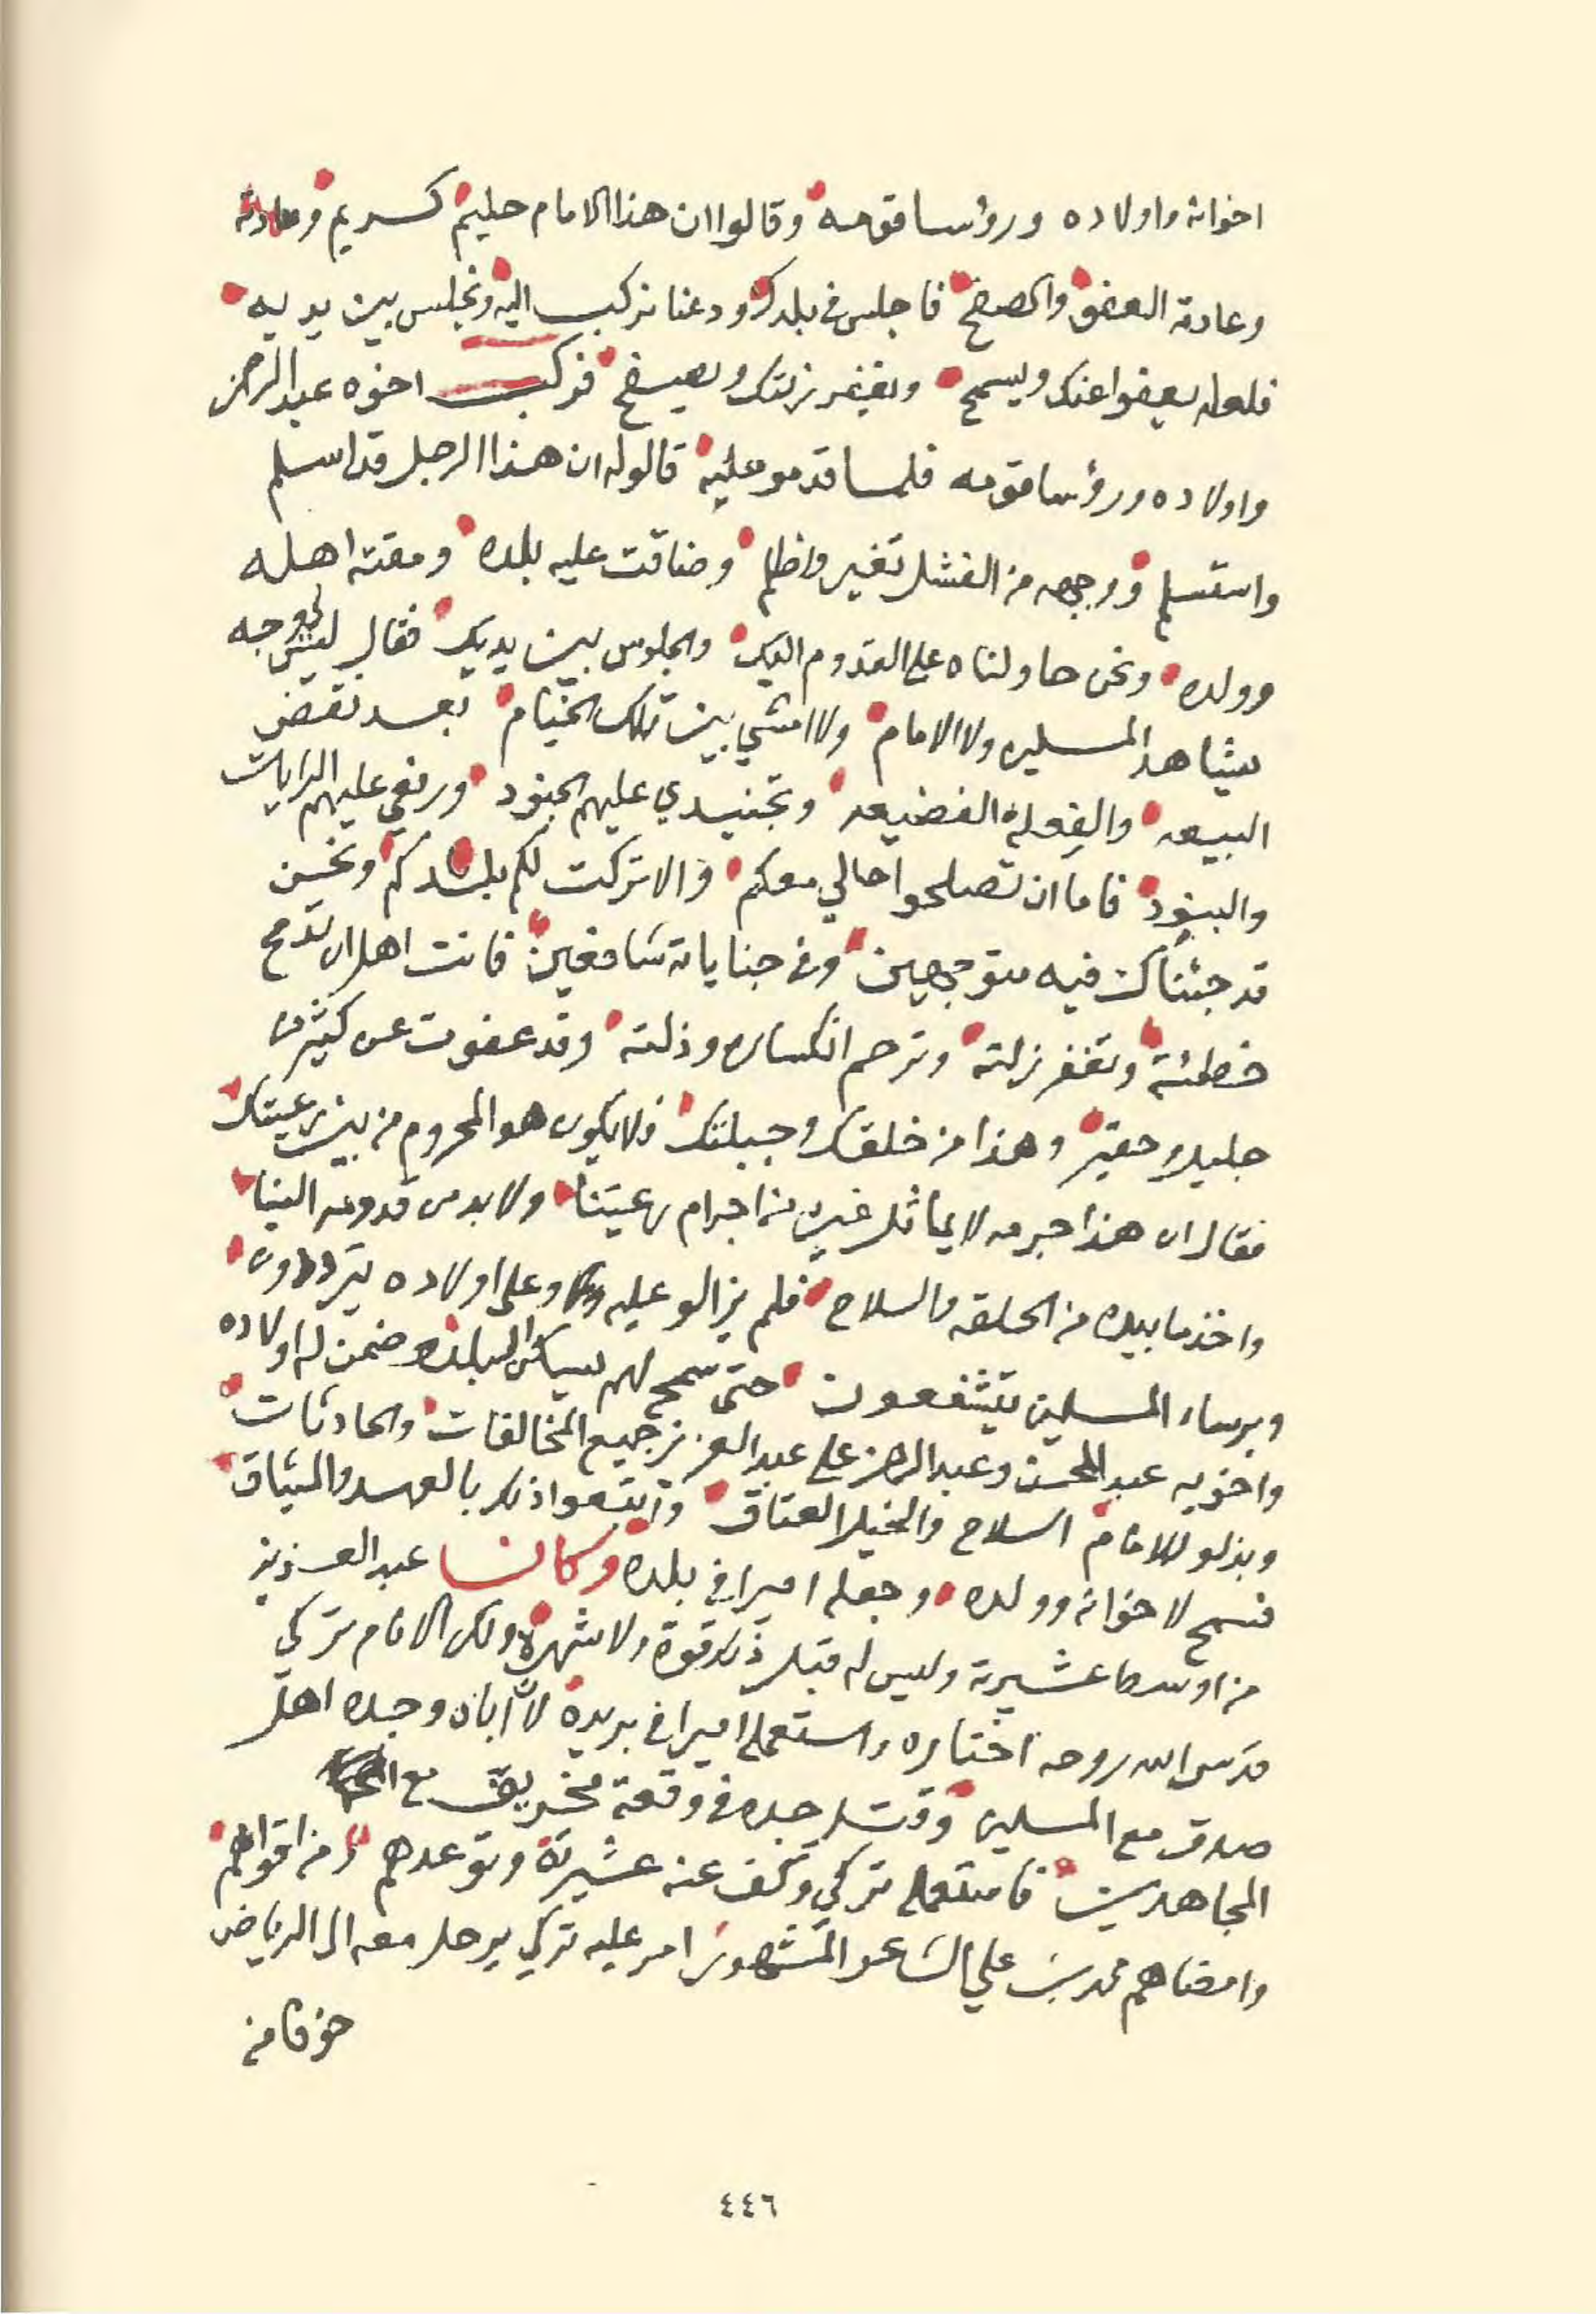 اخوانه واولاده ورؤسا قومه وقالوا ان هذا الامام حليم كريم وعادته
وعادته العفو والصفح فاجلس في بلدك ودعنا نركب اليه ونجلس بين يديه
فلعله يعفوا عنك ويسمح ويغفر زلتك ويصفح فركب اخوه عبدالرحمن
واولاده ورؤسا قومه فلما قدمو عليه قالوله ان هذا الرجل قد اسلم
واستسلم ووجهه من الفشل تغير واظلم وضاقت عليه بلده ومقته اهله
وولده ونحن حاولناه على القدوم اليك والجلوس بين يديك فقال ليس لي وجه
يشاهد المسلمين ولا الامام ولا امشي بين تلك الخيام بعد نقض
البيعه والفعلة الفضيعه وتجنيدي عليهم الجنود ورفعي عليهم الرايات
والبنود فاما ان تصلحوا حالي معكم والا تركت لكم بلدكم ونحن
قد جئناك فيه متوجهين وفي جناياته شافعين فانت اهل ان تدمح
خطئته وتغفر زلته وترحم انكساره وذلته وقد عفوت عن كثير من
جليل وحقير وهذا من خلقك وجبلتك فلا يكون هو المحروم من بين رعيتك
فقال ان هذا جرمه لا يماثل غيره من اجرام رعيتنا ولا بد من قدومه الينا
واخذ ما بيده من الحلقه والسلاح فلم يزالو عليه وعلى اولاده يترددون
وبرساء المسلمين يتشفعون حتى سمح لهم يسكن البلده وضمن له اولاده
واخويه عبدالمحسن وعبدالرحمن على عبدالعزيز جميع المخالفات والحادثات
وبذلو للامام السلاح والخيل العتاق واتبعوا ذلك بالعهد والميثاق
فسمح لاخوانه وولده وجعله اميرا في بلده وكان عبدالعزيز
من اوسط عشيرته وليس له قبل ذلك قوة ولا شهره ولكن الامام تركي
قدس الله روحه اختاره واستعمله اميرا في بريده لان ابان وجده اهل
صدق مع المسلمين وقتل جده في وقعة مخيريق مع
المجاهدين فاستعمله تركي وكف عنه عشيرته وتوعدهم ومن اقواهم
وامضاهم محمد بن علي الشاعر المشهور امر عليه تركي يرحل معه الى الرياض
خوفا من
٤٤٦